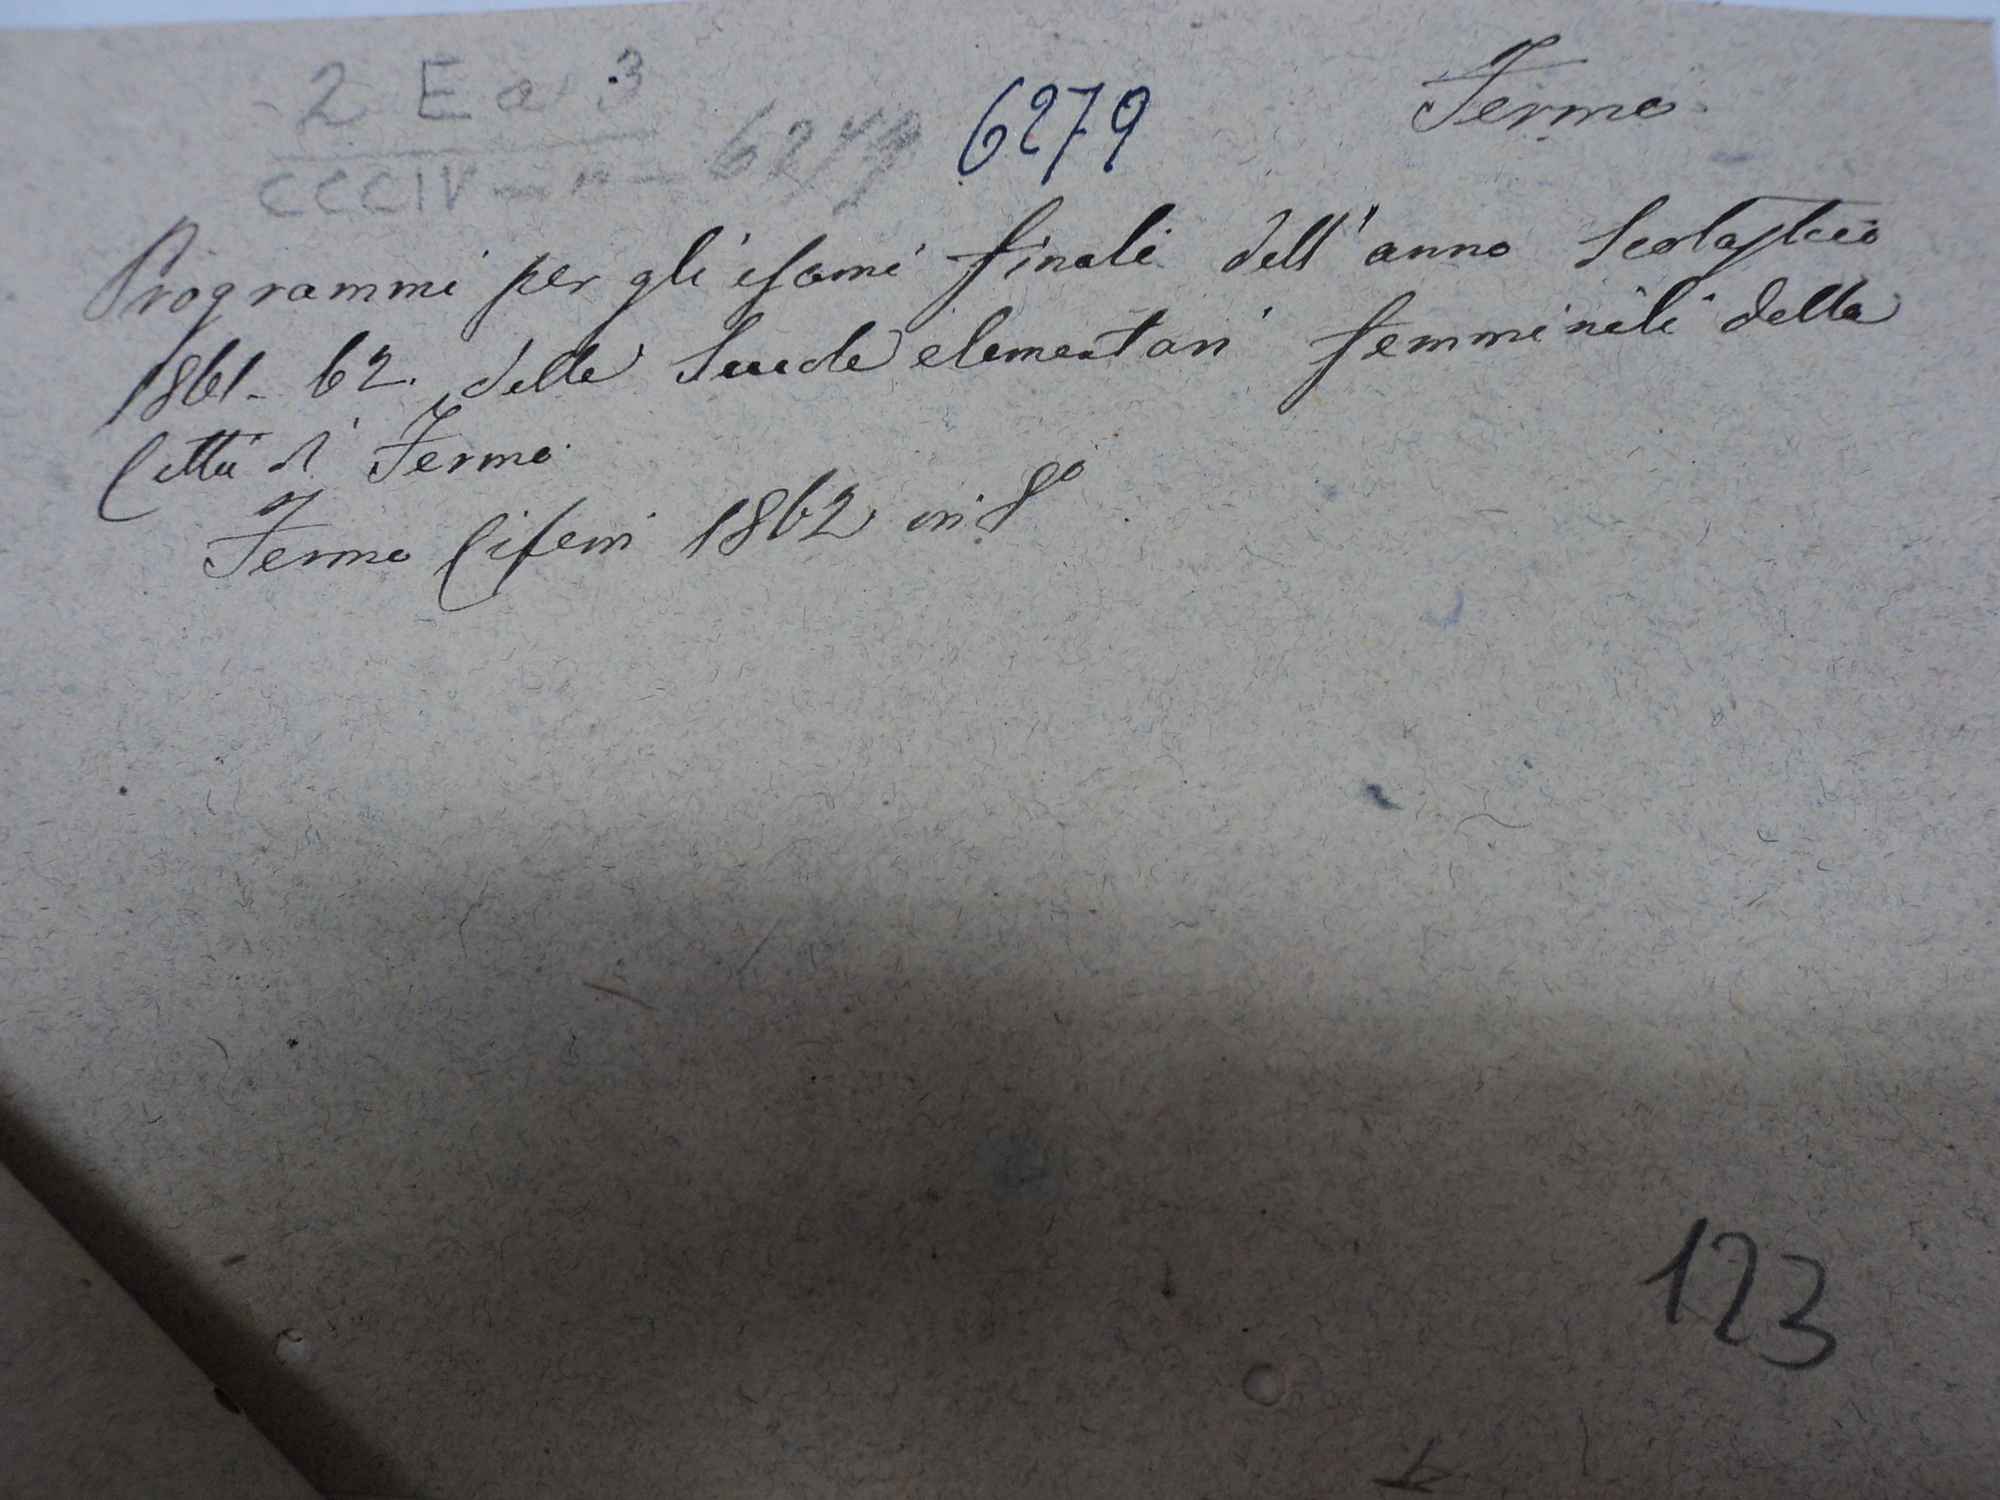 2 E a 3
CCCIV - n - 6279
6279
Fermo
Programmi per gli esami finali dell'anno scolastico
1861-62. delle Scuole elementari femminili della
Città di Fermo
Fermo Ciferri 1862 in 8º
123